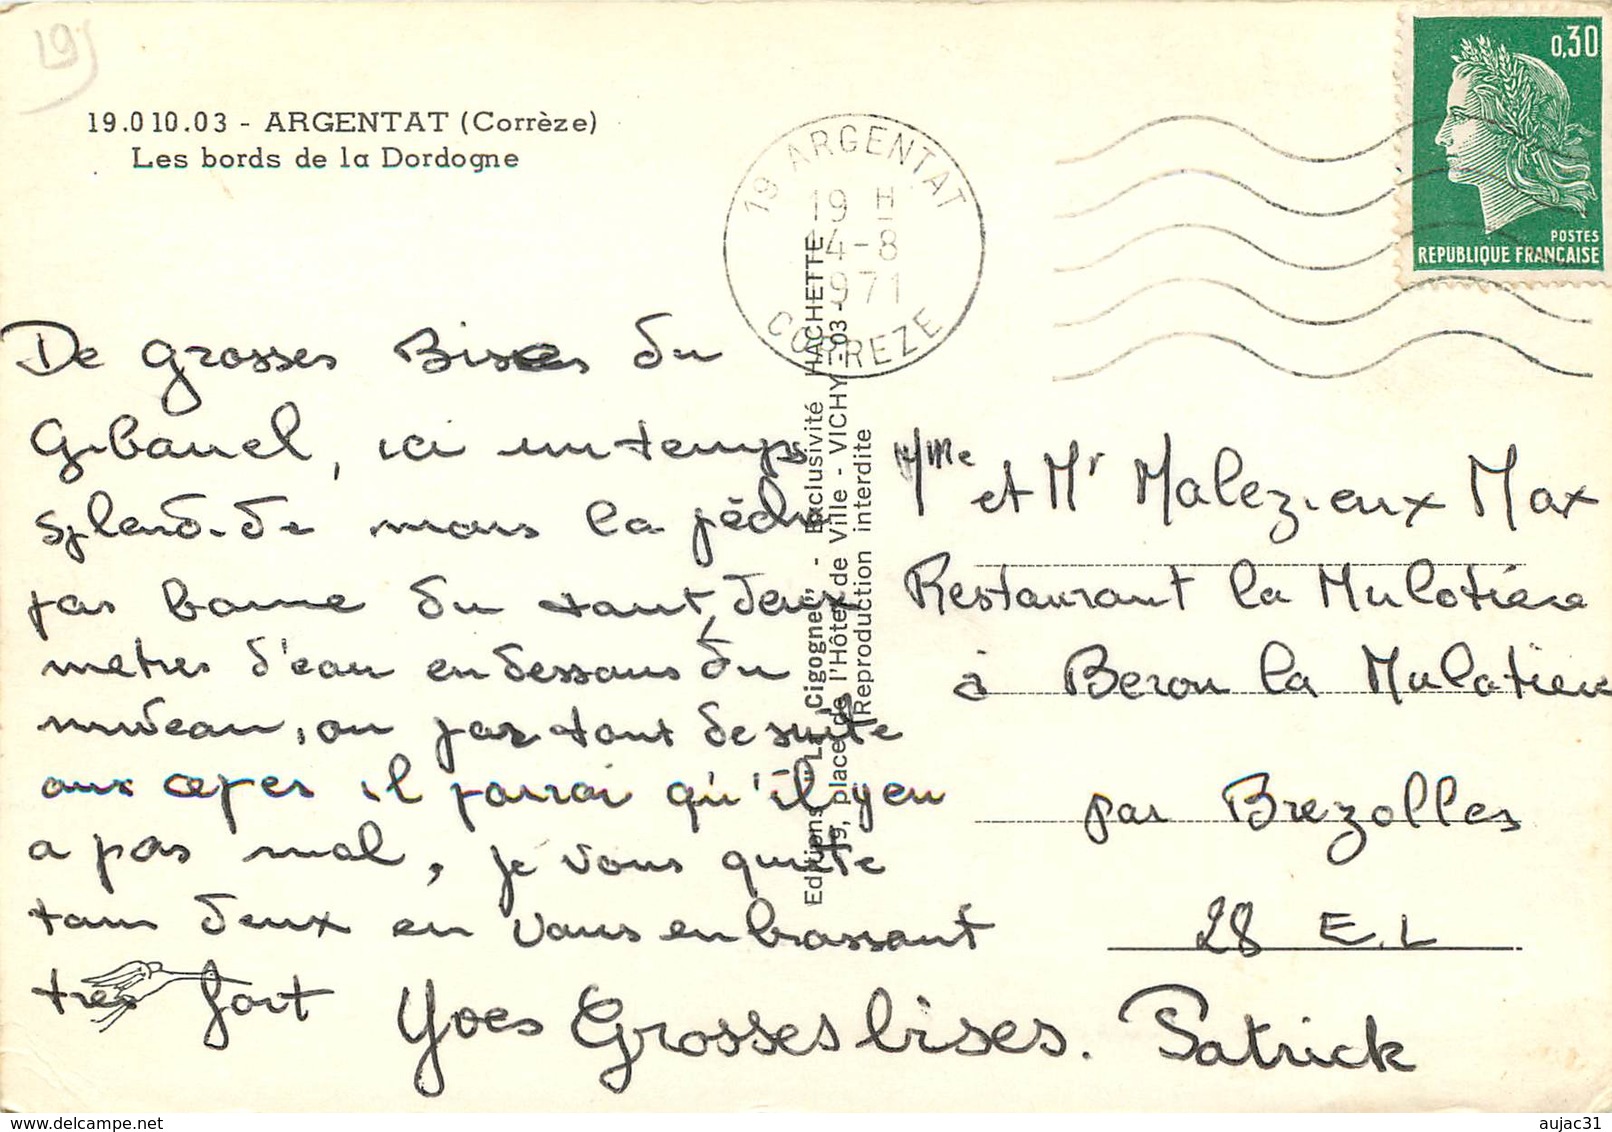 19)
19.010.03 - ARGENTAT (Corrèze)
Les bords de la Dordogne
19 ARGENTAT
19 H
14-8
1971
CORREZE
0,30
POSTES
REPUBLIQUE FRANÇAISE
De grosses Bises du
Gibanel, ici un temps
splendide mais la pêche
pas bonne du tout, deux
metres d'eau en dessous du
niveau, on par tout de suite
aux cepes il parrai qu'il y en
a pas mal, je vous quitte
tous deux en vous enbrassant
tres fort Yves Grosses bises. Patrick
Editions "La Cigogne" - Exclusivité HACHETTE
19, place de l'Hôtel de Ville - VICHY - 03 -
Reproduction interdite
Mme et Mr Malezieux Max
Restaurant la Mulotiere
à Berou la Mulotiere
par Brezolles
28 E.L
aujac31